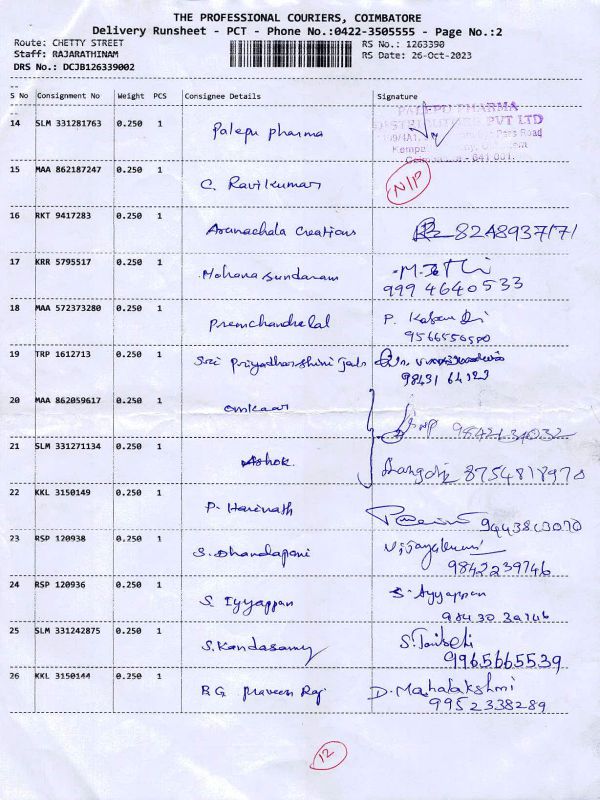 THE PROFESSIONAL COURIERS, COIMBATORE
Delivery Runsheet - PCT - Phone No.:0422-3505555 - Page No.:2
Route: CHETTY STREET RS No.: 1263390
Staff: RAJARATHINAM RS Date: 26-Oct-2023
DRS No.: DCJB126339002
S No Consignment No Weight PCS Consignee Details Signature
PALEPU PHARMA
PVT LTD
14 SLM 331281763 0.250 1 Palepu pharma
Pass Road
15 MAA 862187247 0.250 1 C. Ravikumar N/P
16 RKT 9417283 0.250 1 Arunachala Creations 8248937171
17 KRR 5795517 0.250 1 Mohana sundaram
999 4640533
18 MAA 572373280 0.250 1 Premchandrelal P.
9566550580
19 TRP 1612713 0.250 1 Sri Priyadharshini
98431 64123
20 MAA 862059617 0.250 1 omkaar
21 SLM 331271134 0.250 1 Ashok 8754818970
22 KKL 3150149 0.250 1 P. Harinath
23 RSP 120938 0.250 1 S. Dhandapani
9842239746
24 RSP 120936 0.250 1 S. Iyyappan S. Ayyappan
25 SLM 331242875 0.250 1 S. Kandasamy
9965665539
26 KKL 3150144 0.250 1 R.G praveen Raj D. Mahalakshmi
9952338289
12